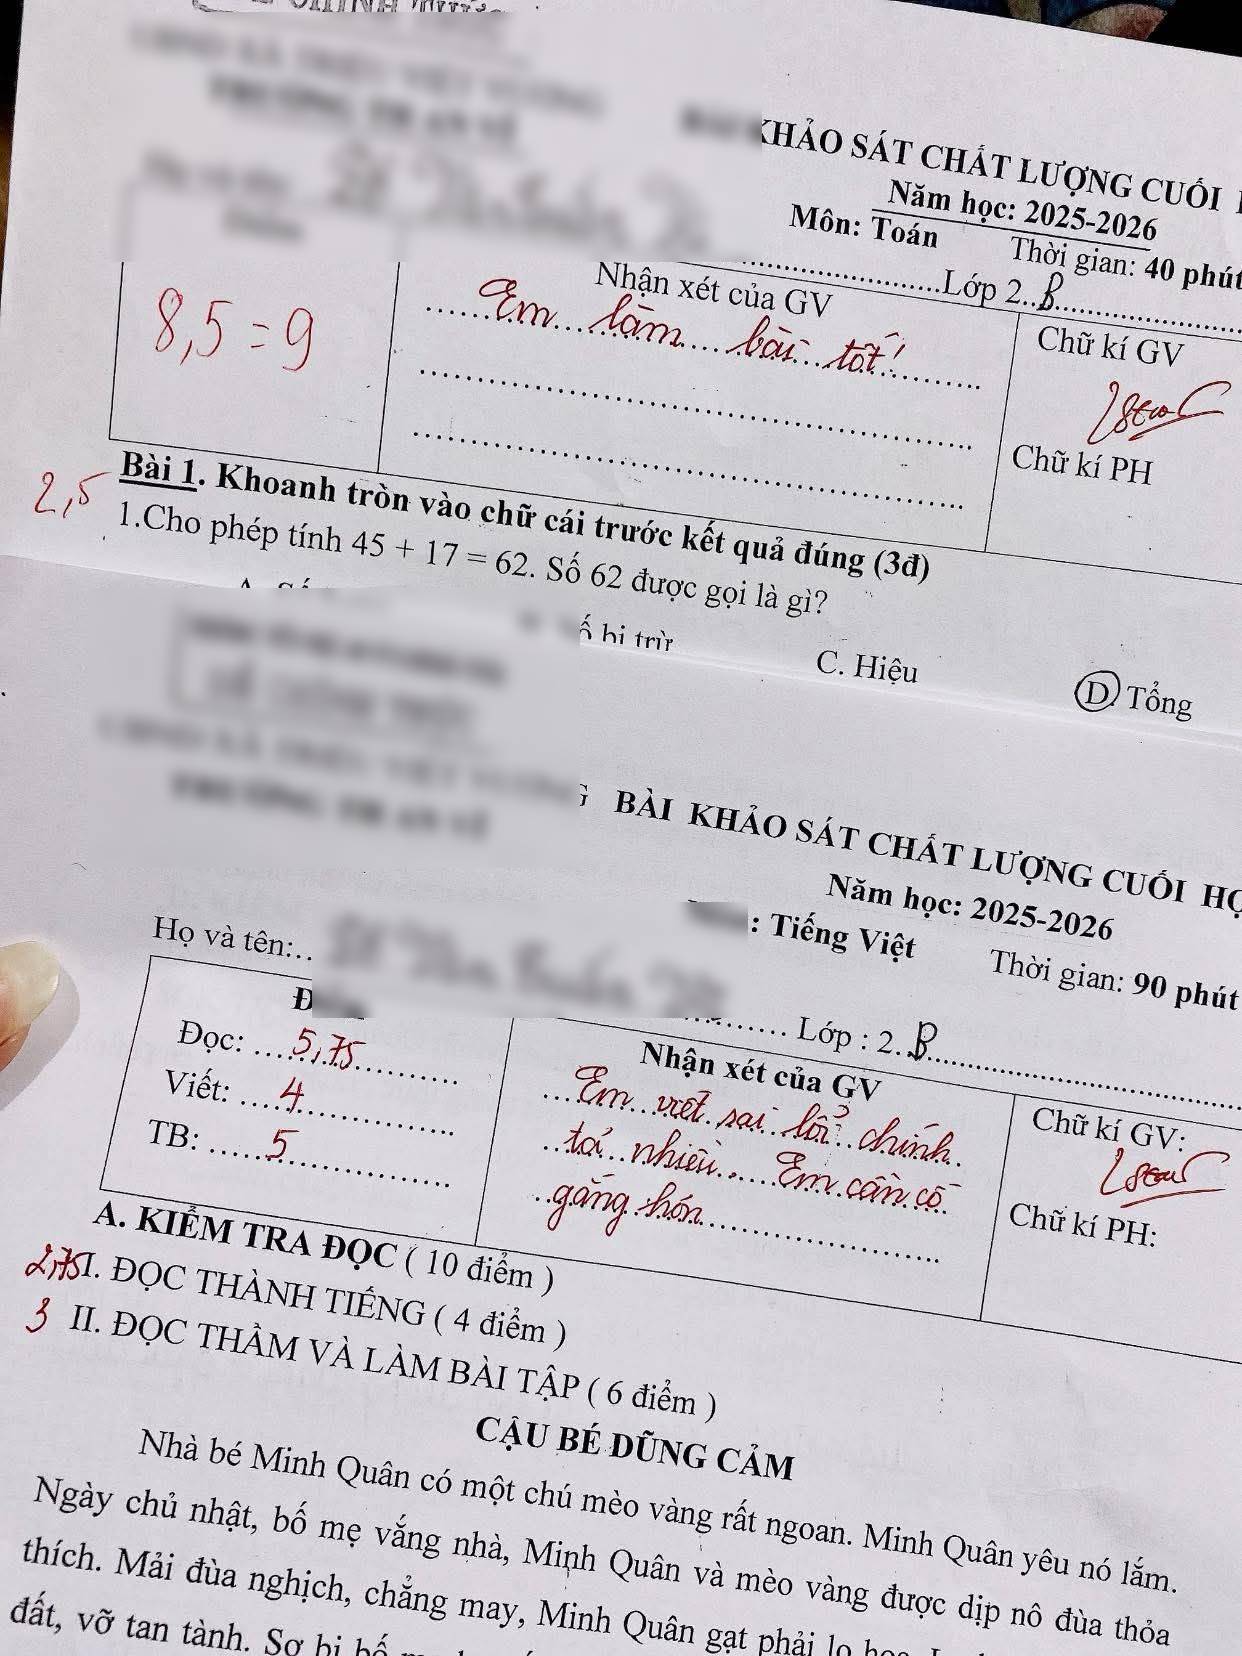 KHẢO SÁT CHẤT LƯỢNG CUỐI
Năm học: 2025-2026
Môn: Toán Thời gian: 40 phút
Lớp 2..B
Nhận xét của GV
Chữ kí GV
8,5 = 9
Em làm bài tốt!
Chữ kí PH
2,5 Bài 1. Khoanh tròn vào chữ cái trước kết quả đúng (3đ)
1.Cho phép tính 45 + 17 = 62. Số 62 được gọi là gì?
bị trừ C. Hiệu D. Tổng
BÀI KHẢO SÁT CHẤT LƯỢNG CUỐI
Năm học: 2025-2026
: Tiếng Việt Thời gian: 90 phút
Họ và tên:..
Lớp : 2.B
Đọc: 5,75
Viết: 4
TB: 5
Nhận xét của GV
Em viết sai lỗi chính
tả nhiều. Em cần cố
gắng hơn
Chữ kí GV:
Chữ kí PH:
A. KIỂM TRA ĐỌC ( 10 điểm )
2,75 I. ĐỌC THÀNH TIẾNG ( 4 điểm )
3 II. ĐỌC THẦM VÀ LÀM BÀI TẬP ( 6 điểm )
CẬU BÉ DŨNG CẢM
Nhà bé Minh Quân có một chú mèo vàng rất ngoan. Minh Quân yêu nó lắm.
Ngày chủ nhật, bố mẹ vắng nhà, Minh Quân và mèo vàng được dịp nô đùa thỏa
thích. Mải đùa nghịch, chẳng may, Minh Quân gạt phải lọ
đất, vỡ tan tành. Sợ bị bố